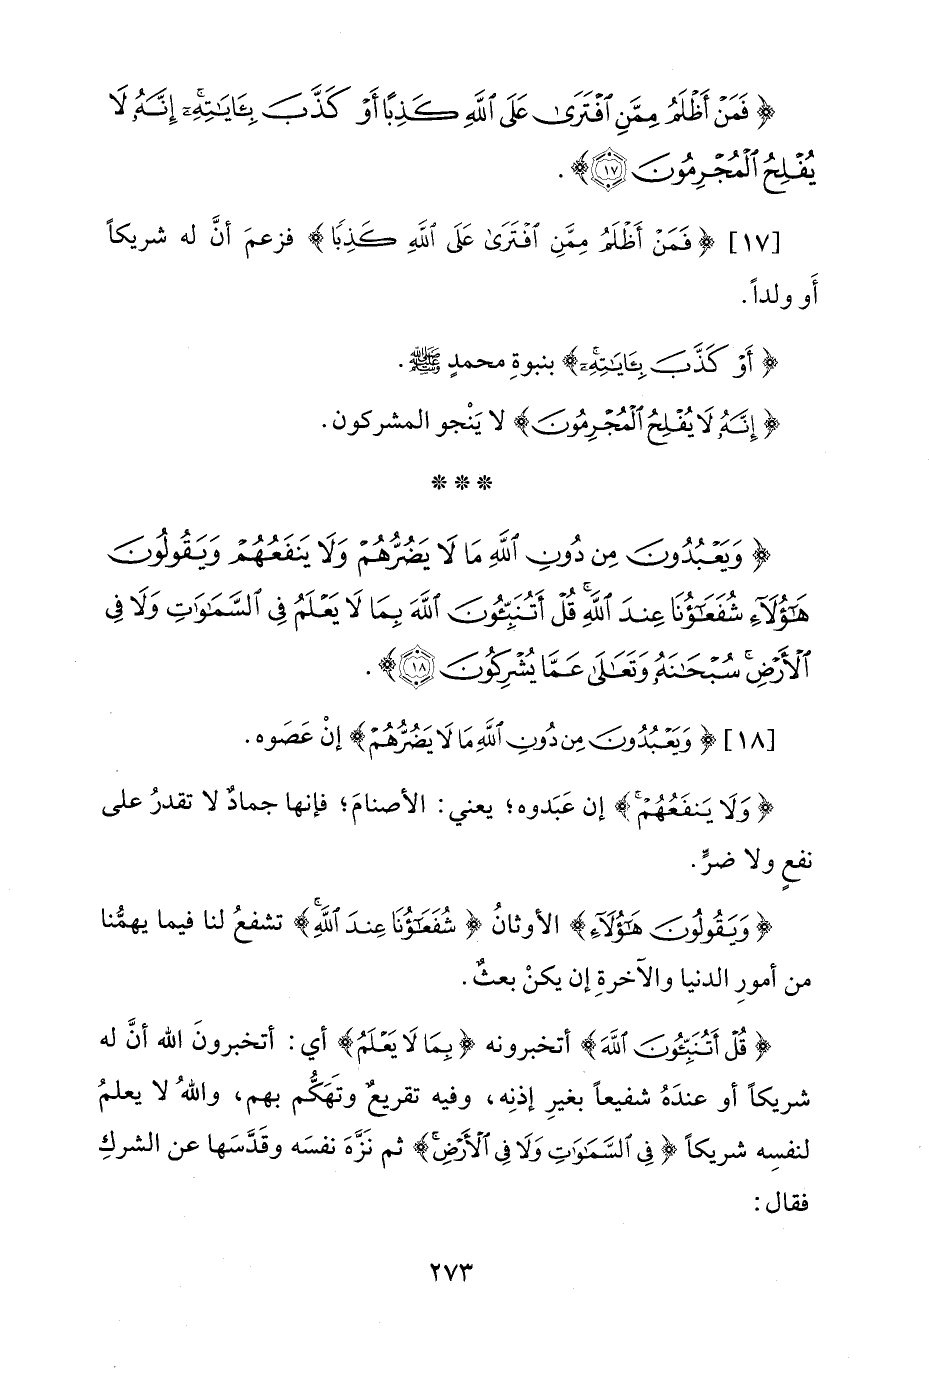 ﴿ فَمَنْ أَظْلَمُ مِمَّنِ ٱفْتَرَىٰ عَلَى ٱللَّهِ كَذِبًا أَوْ كَذَّبَ بِـَٔايَـٰتِهِۦٓ ۚ إِنَّهُۥ لَا
يُفْلِحُ ٱلْمُجْرِمُونَ ﴿١٧﴾ ﴾ .
[١٧] ﴿ فَمَنْ أَظْلَمُ مِمَّنِ ٱفْتَرَىٰ عَلَى ٱللَّهِ كَذِبًا ﴾ فزعمَ أنَّ له شريكاً
أَو ولداً.
﴿ أَوْ كَذَّبَ بِـَٔايَـٰتِهِۦٓ ۚ ﴾ بنبوةِ محمدٍ ﷺ.
﴿ إِنَّهُۥ لَا يُفْلِحُ ٱلْمُجْرِمُونَ ﴾ لا يَنْجو المشركون.
* * *
﴿ وَيَعْبُدُونَ مِن دُونِ ٱللَّهِ مَا لَا يَضُرُّهُمْ وَلَا يَنفَعُهُمْ وَيَقُولُونَ
هَـٰٓؤُلَآءِ شُفَعَـٰٓؤُنَا عِندَ ٱللَّهِ ۚ قُلْ أَتُنَبِّـُٔونَ ٱللَّهَ بِمَا لَا يَعْلَمُ فِى ٱلسَّمَـٰوَٰتِ وَلَا فِى
ٱلْأَرْضِ ۚ سُبْحَـٰنَهُۥ وَتَعَـٰلَىٰ عَمَّا يُشْرِكُونَ ﴿١٨﴾ ﴾ .
[١٨] ﴿ وَيَعْبُدُونَ مِن دُونِ ٱللَّهِ مَا لَا يَضُرُّهُمْ ﴾ إنْ عَصَوه.
﴿ وَلَا يَنفَعُهُمْ ۚ ﴾ إن عَبَدوه؛ يعني: الأصنامَ؛ فإنها جمادٌ لا تقدرُ على
نفعٍ ولا ضرٍّ.
﴿ وَيَقُولُونَ هَـٰٓؤُلَآءِ ﴾ الأوثانُ ﴿ شُفَعَـٰٓؤُنَا عِندَ ٱللَّهِ ۚ ﴾ تشفعُ لنا فيما يهمُّنا
من أمورِ الدنيا والآخرةِ إن يكنْ بعثٌ.
﴿ قُلْ أَتُنَبِّـُٔونَ ٱللَّهَ ﴾ أتخبرونه ﴿ بِمَا لَا يَعْلَمُ ﴾ أي: أتخبرونَ الله أنَّ له
شريكاً أو عندَهُ شفيعاً بغيرِ إذنِه، وفيه تقريعٌ وتَهَكُّم بهم، واللهُ لا يعلمُ
لنفسِه شريكاً ﴿ فِى ٱلسَّمَـٰوَٰتِ وَلَا فِى ٱلْأَرْضِ ۚ ﴾ ثم نَزَّهَ نفسَه وقَدَّسَها عن الشركِ
فقال:
٢٧٣